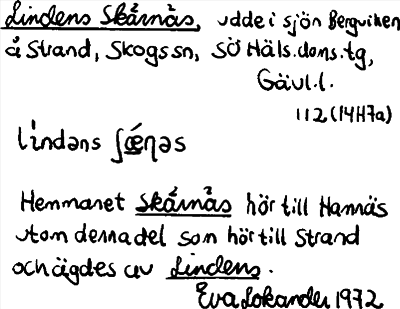 Lindens Skårnäs, udde i sjön Bergviken
å Strand, Skogs sn, Sö Häls. doms. tg,
Gävl. l.
112 (14H7a)
líndəns ʃǽŋəs
Hemmanet Skårnäs hör till Hamnäs
utom denna del som hör till Strand
och ägdes av Lindens.
Eva Lokander 1972